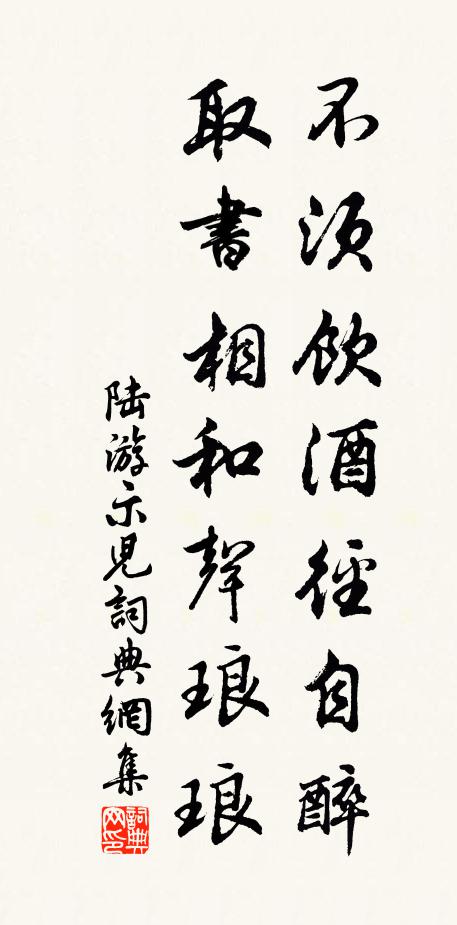 不須飲酒徑自醉
取書相和聲琅琅
陸游示兒詞典網集
詞典網印